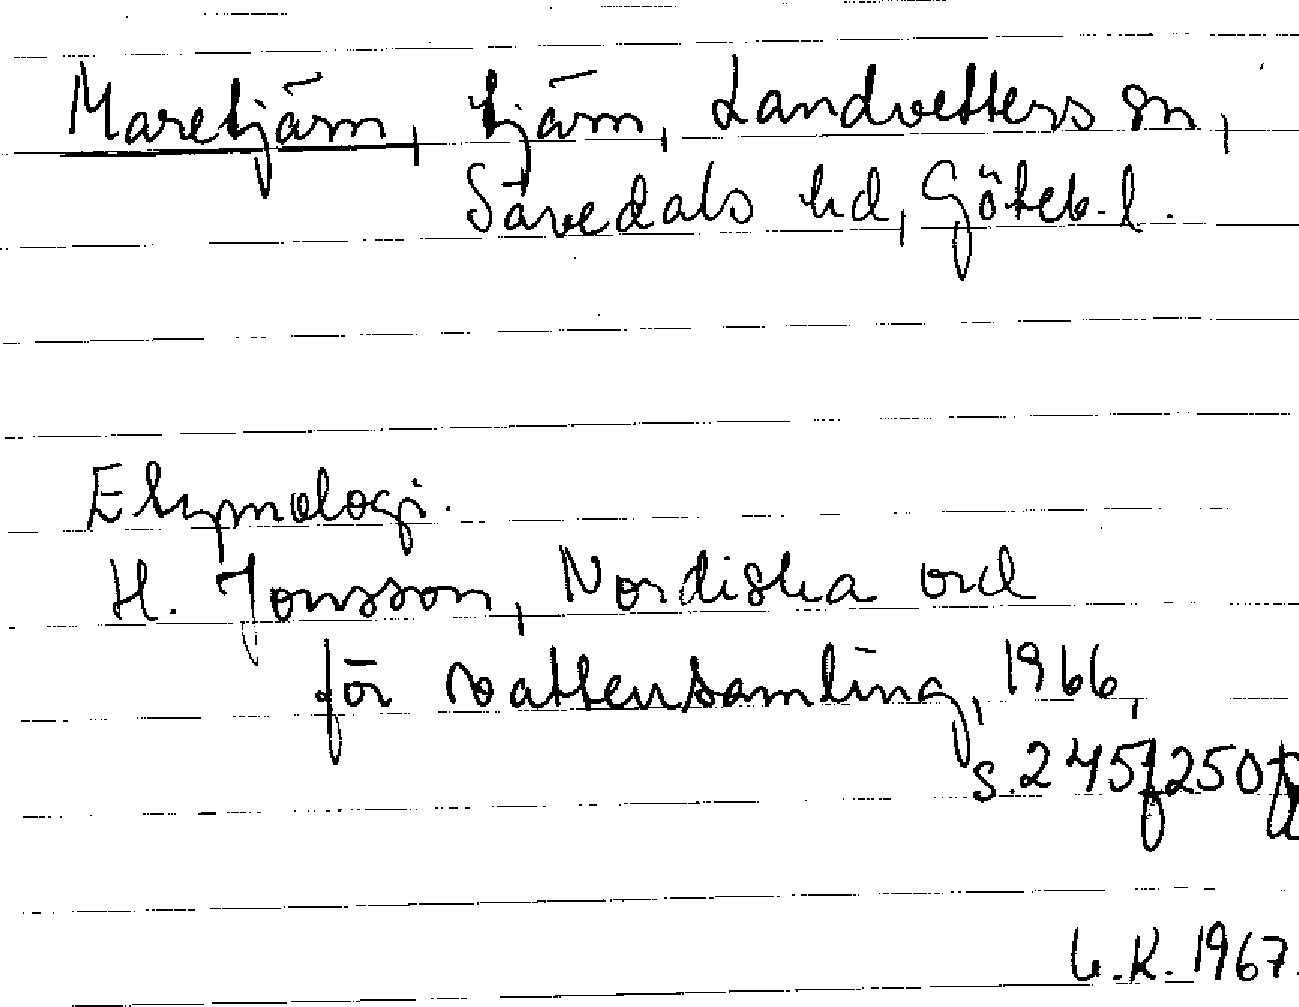 Maretjärn, tjärn, Landvetters sn,
Sävedals hd, Göteb. l.
Etymologi.
H. Jonsson, Nordiska ord
för vattensamling, 1966,
s. 245f 250f
L.K. 1967.